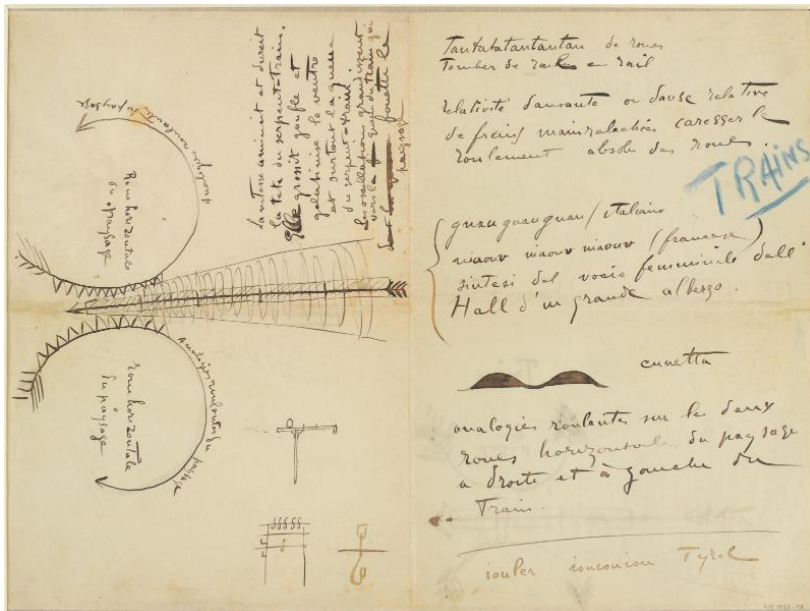 Tantatatantantan de roues
Tomber de rail en rail
relativité dansante ou danse relative
de freins mainrelachées caresser le
roulement absolu des roues.
TRAINS
guau guau guau / italiano
miaour miaour miaour (francese)
sintesi del vocio femminile dall'
Hall d'un grande albergo.
cunetta
analogies roulantes sur les deux
roues horizontales du paysage
à droite et à gauche du
Train.
Tyrol
La vitesse amincit et durcit
la tête du serpent-train.
Elle grossit gonfle et
gélatinise le ventre
et surtout la queue
du serpent-train.
L'oscillation grandissent
vers la queue du train qui
fouette le
paysage
Analogies roulantes du paysage
Roue horizontale
du paysage
Analogies roulantes du paysage
roue horizontale
du paysage